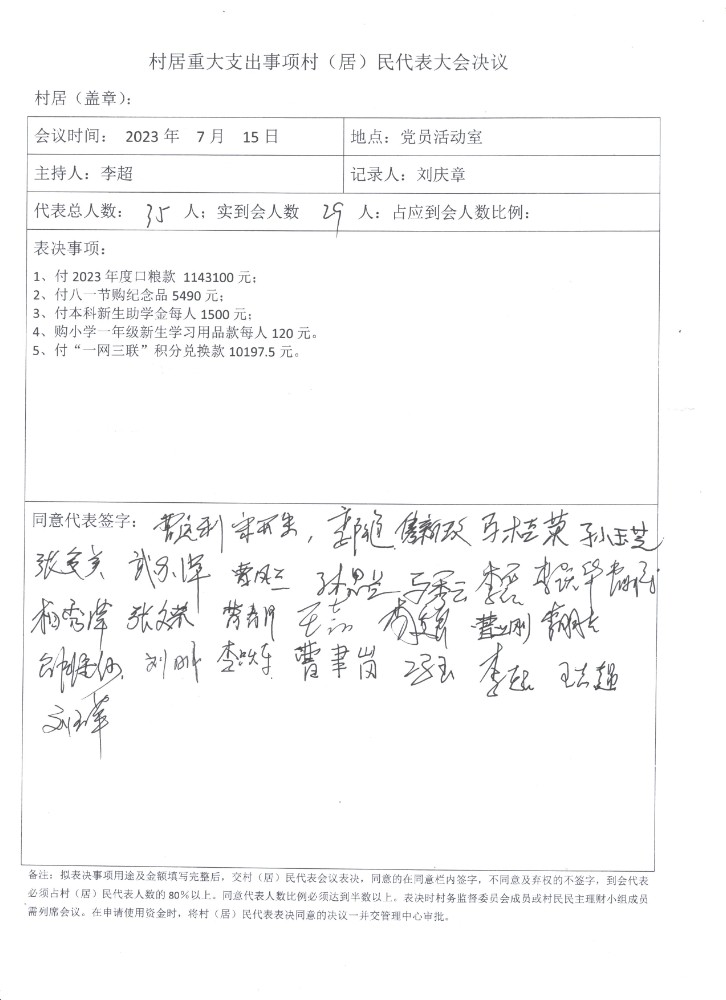 村居重大支出事项村（居）民代表大会决议
村居（盖章）：
会议时间： 2023 年 7 月 15 日
地点：党员活动室
主持人：李超
记录人：刘庆章
代表总人数： 35 人；实到会人数 29 人：占应到会人数比例：
表决事项：
1、付 2023 年度口粮款 1143100 元；
2、付八一节购纪念品 5490 元；
3、付本科新生助学金每人 1500 元；
4、购小学一年级新生学习用品款每人 120 元。
5、付“一网三联”积分兑换款 10197.5 元。
同意代表签字： 马桂英 孙玉芝
杨秀泽 张文荣 曹春月 王
刘明 李 曹聿岗 冯玉 李超 王志超
刘玉萍
备注：拟表决事项用途及金额填写完整后，交村（居）民代表会议表决，同意的在同意栏内签字，不同意及弃权的不签字，到会代表
必须占村（居）民代表人数的 80%以上。同意代表人数比例必须达到半数以上。表决时村务监督委员会成员或村民民主理财小组成员
需列席会议。在申请使用资金时，将村（居）民代表表决同意的决议一并交管理中心审批。